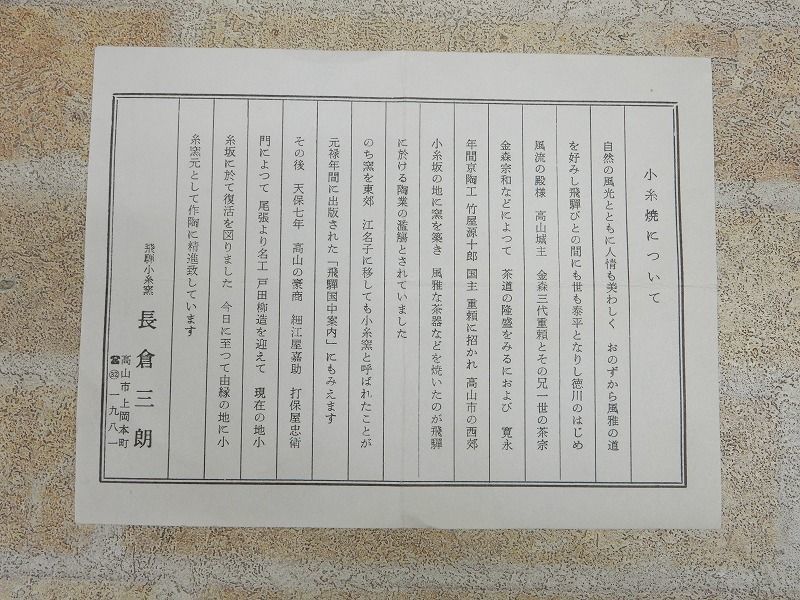 小糸焼について
自然の風光とともに人情も美わしく　おのずから風雅の道
を好みし飛騨びとの間にも世も泰平となりし徳川のはじめ
風流の殿様　高山城主　金森三代重頼とその兄一世の茶宗
金森宗和などによつて　茶道の隆盛をみるにおよび　寛永
年間京陶工　竹屋源十郎　国主　重頼に招かれ　高山市の西郊
小糸坂の地に窯を築き　風雅な茶器などを焼いたのが飛騨
に於ける陶業の濫觴とされていました
のち窯を東郊　江名子に移しても小糸窯と呼ばれたことが
元禄年間に出版された「飛騨国中案内」にもみえます
その後　天保七年　高山の豪商　細江屋嘉助　打保屋忠衛
門によつて　尾張より名工　戸田柳造を迎えて　現在の地小
糸坂に於て復活を図りました　今日に至つて由縁の地に小
糸窯元として作陶に精進致しています
飛騨小糸窯　長倉三朗
高山市上岡本町
☎㉜一九八一